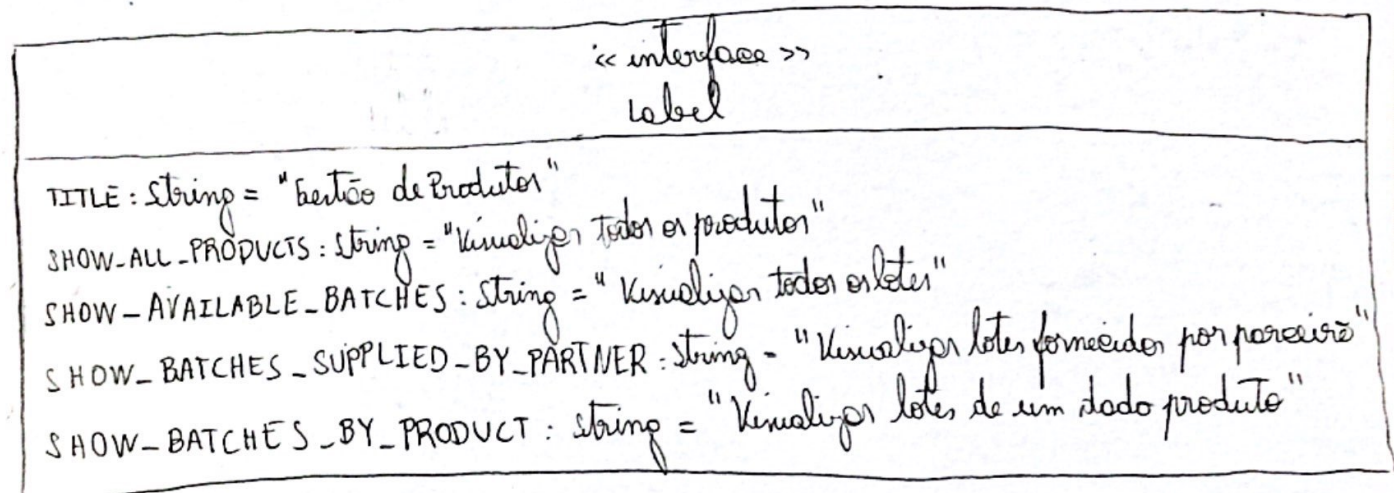 << interface >>
Label
TITLE : String = "Gestão de Produtos"
SHOW_ALL_PRODUCTS : String = "Visualizar todos os produtos"
SHOW_AVAILABLE_BATCHES : String = "Visualizar todos os lotes"
SHOW_BATCHES_SUPPLIED_BY_PARTNER : String = "Visualizar lotes fornecidos por parceiro"
SHOW_BATCHES_BY_PRODUCT : String = "Visualizar lotes de um dado produto"